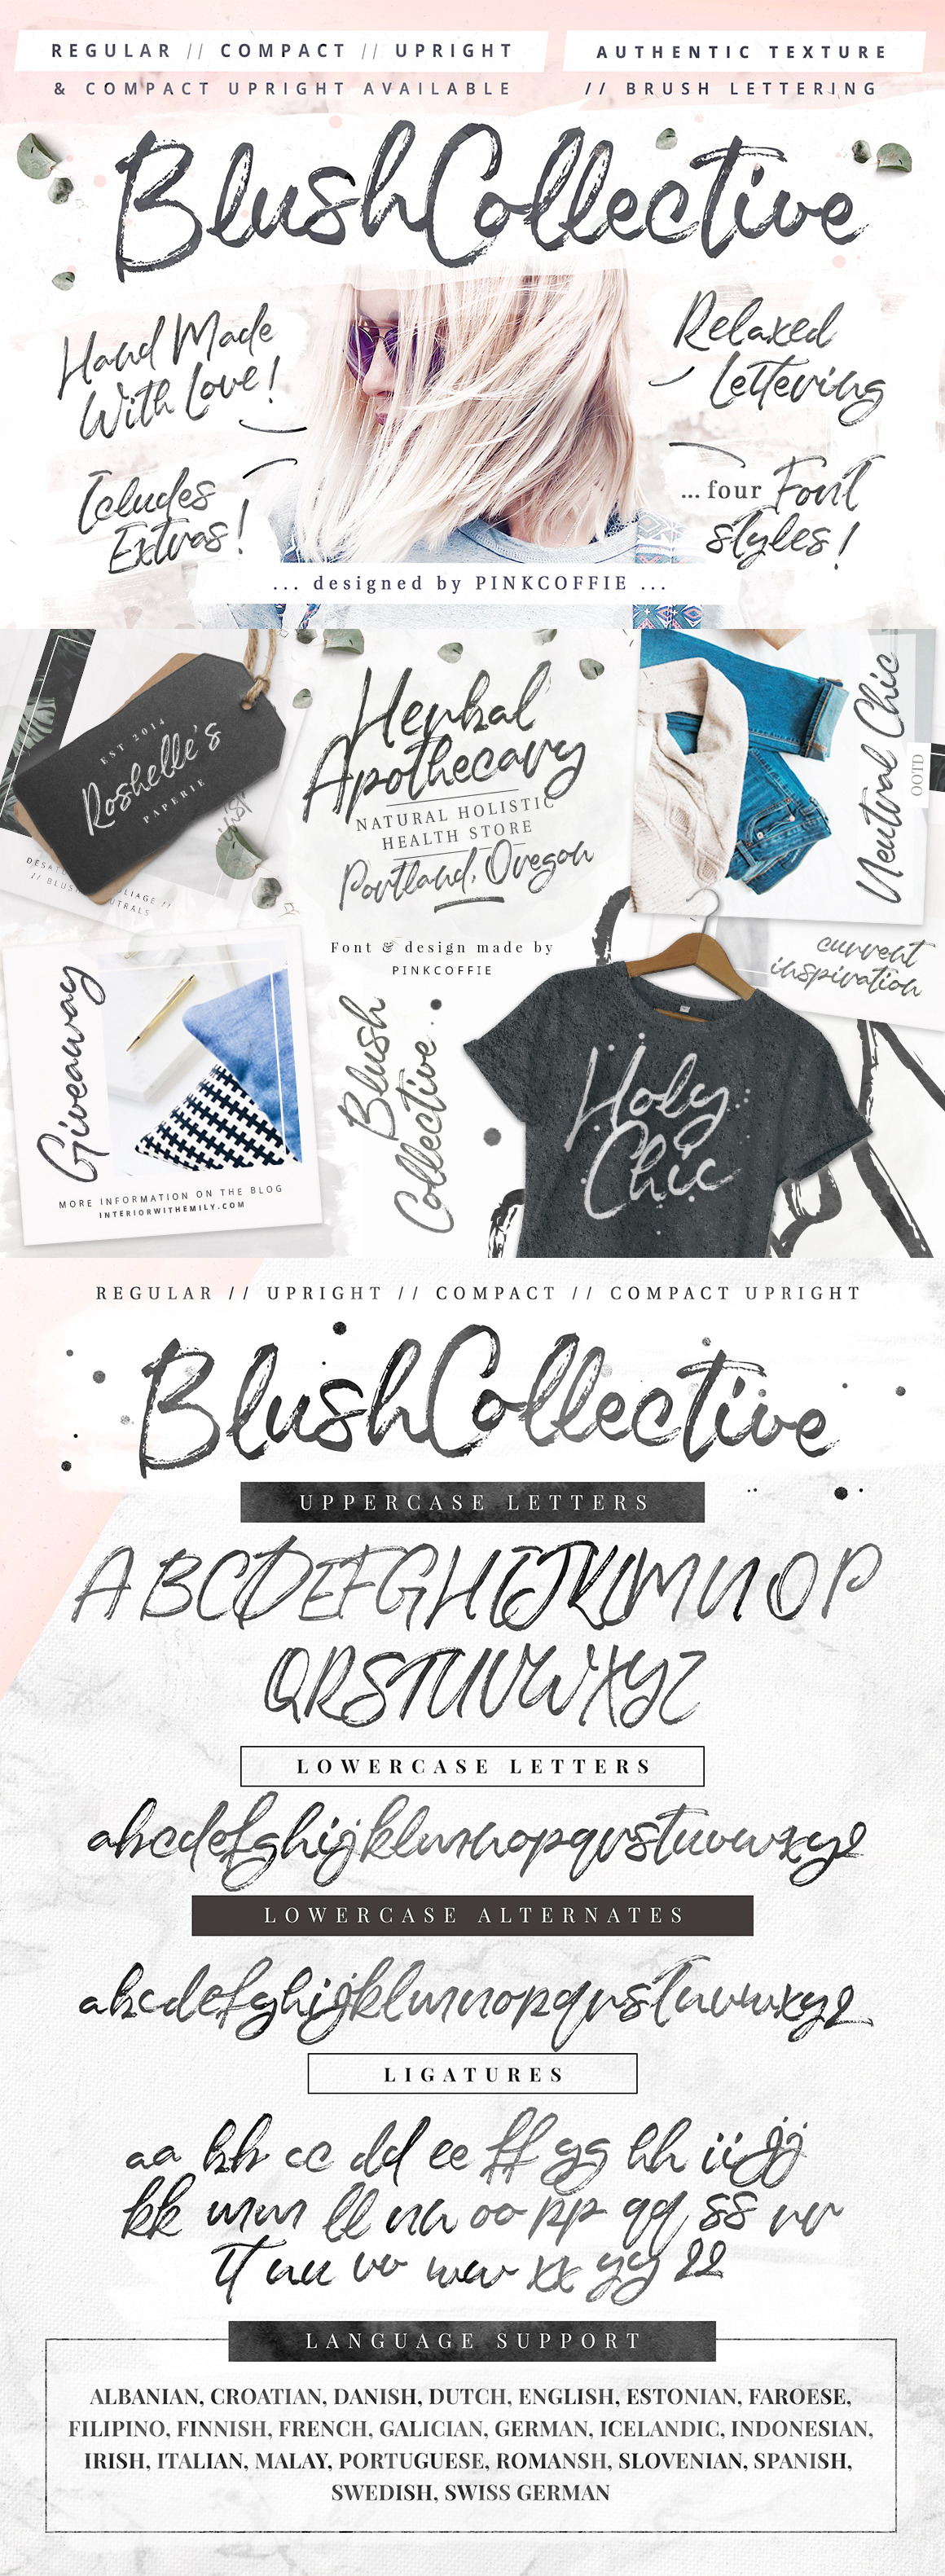 REGULAR // COMPACT // UPRIGHT
& COMPACT UPRIGHT AVAILABLE
AUTHENTIC TEXTURE
// BRUSH LETTERING
BlushCollective
Hand Made
With Love!
Relaxed
Lettering
Icludes
Extras!
... four Font
styles!
... designed by PINKCOFFIE ...
EST 2014
Roshelle's
PAPERIE
Herbal
Apothecary
NATURAL HOLISTIC
HEALTH STORE
Portland, Oregon
Neutral Chic
OOTD
Font & design made by
PINKCOFFIE
current
inspiration
Giveaway
MORE INFORMATION ON THE BLOG
INTERIORWITHEMILY.COM
Blush
Collective
Holy
Chic
REGULAR // UPRIGHT // COMPACT // COMPACT UPRIGHT
BlushCollective
UPPERCASE LETTERS
ABCDEFGHIJKLMNOP
QRSTUVWXYZ
LOWERCASE LETTERS
abcdefghijklmnopqrstuvwxyz
LOWERCASE ALTERNATES
abcdefghijklmnopqrstuvwxyz
LIGATURES
aa bb cc dd ee ff gg hh ii jj
kk mm ll nn oo pp qq ss rr
tt uu vv ww xx yy zz
LANGUAGE SUPPORT
ALBANIAN, CROATIAN, DANISH, DUTCH, ENGLISH, ESTONIAN, FAROESE,
FILIPINO, FINNISH, FRENCH, GALICIAN, GERMAN, ICELANDIC, INDONESIAN,
IRISH, ITALIAN, MALAY, PORTUGUESE, ROMANSH, SLOVENIAN, SPANISH,
SWEDISH, SWISS GERMAN